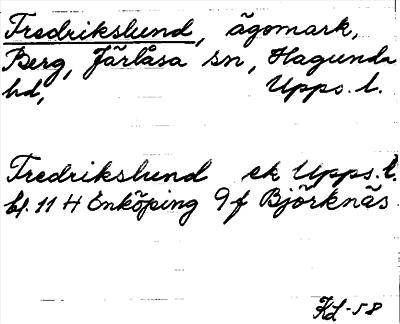 Fredrikslund, ägomark,
Berg, Järlåsa sn, Hagunda
hd, Upps. l.
Fredrikslund ek Upps. l.
bl. 11 H Enköping 9 f Björknäs
KL -58